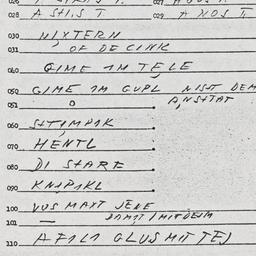 028 A SHIS T. 029 A NOS T.
030 NIXTERN
031 OF DE CINK
040 GIME 1M TELE
050 GIME 1M GUPL NISHT DEM
051 O A, NSHTAT
060 SHTIMPAK
070 HENTL
080 DI SHARE
090 KNAPAKL
100 VUS MAXT JENE
101 — DAMIT / MIT DEIM
110 A FALA GLUS MIT TEJ